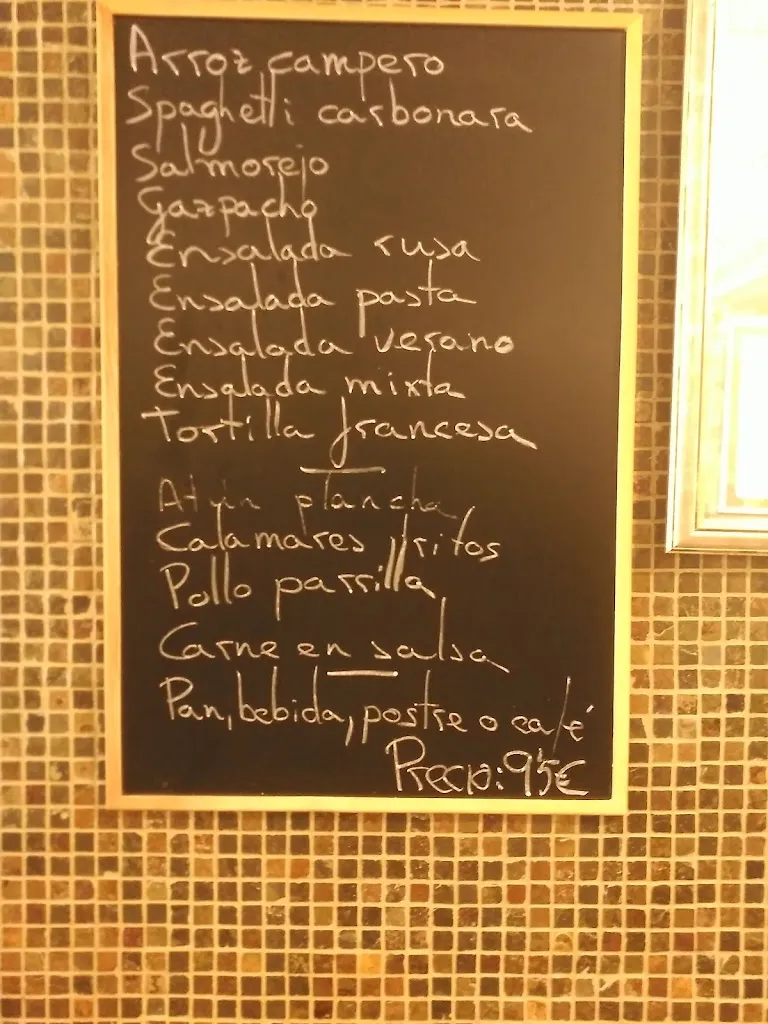 Arroz campero
Spaghetti carbonara
Salmorejo
Gazpacho
Ensalada rusa
Ensalada pasta
Ensalada verano
Ensalada mixta
Tortilla francesa
Atún plancha
Calamares fritos
Pollo parrilla
Carne en salsa
Pan, bebida, postre o café
Precio: 9'5€